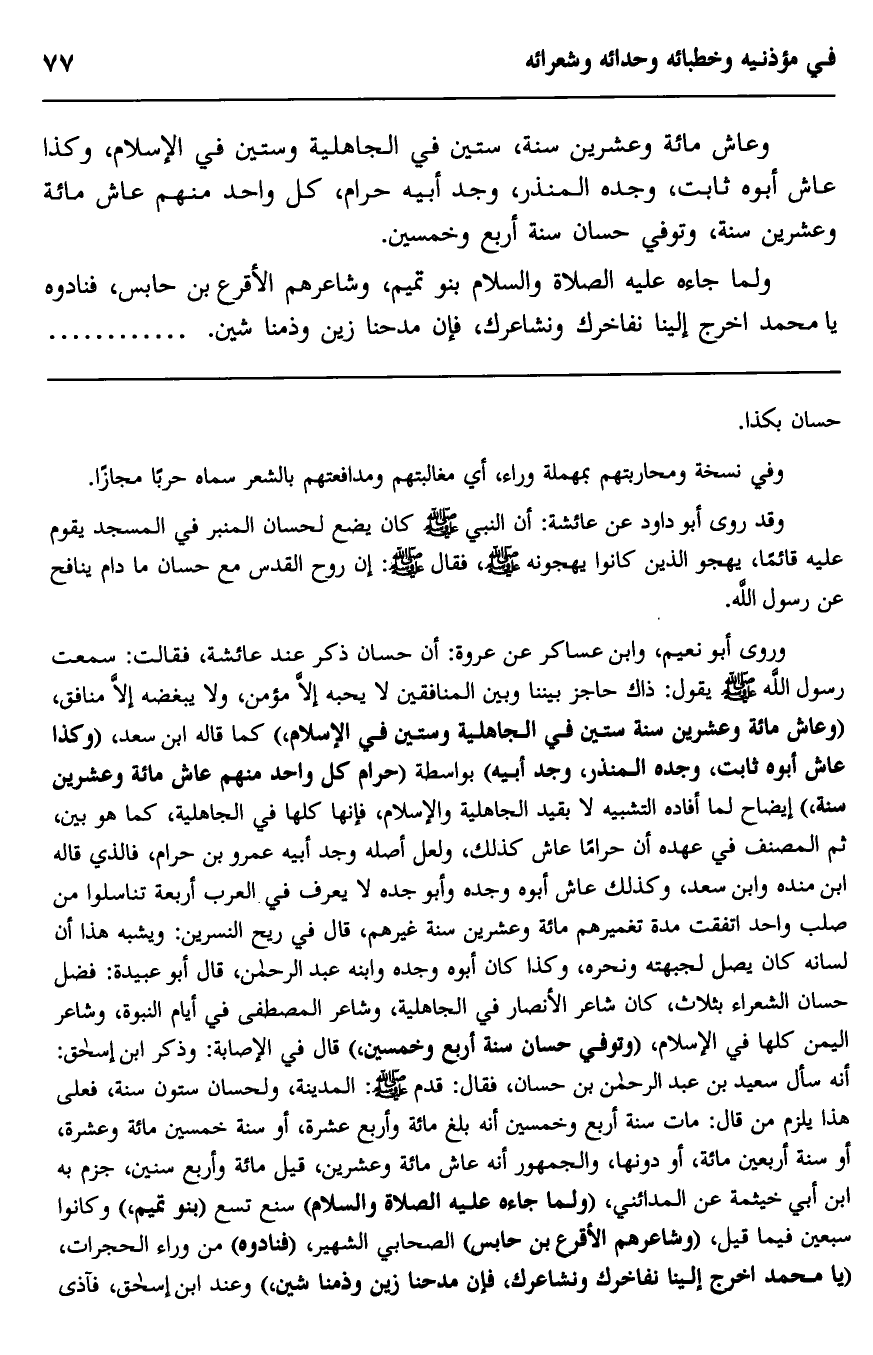 في مؤذنيه وخطبائه وحدائه وشعرائه ٧٧
وعاش مائة وعشرين سنة، ستين في الجاهلية وستين في الإسلام، وكذا
عاش أبوه ثابت، وجده المنذر، وجد أبيه حرام، كل واحد منهم عاش مائة
وعشرين سنة، وتوفي حسان سنة أربع وخمسين.
ولما جاءه عليه الصلاة والسلام بنو تميم، وشاعرهم الأقرع بن حابس، فنادوه
يا محمد اخرج إلينا نفاخرك ونشاعرك، فإن مدحنا زين وذمنا شين. ............
حسان بكذا.
وفي نسخة ومحاربتهم بمهملة وراء، أي مغالبتهم ومدافعتهم بالشعر سماه حربًا مجازًا.
وقد روى أبو داود عن عائشة: أن النبي ﷺ كان يضع لحسان المنبر في المسجد يقوم
عليه قائمًا، يهجو الذين كانوا يهجونه ﷺ، فقال ﷺ: إن روح القدس مع حسان ما دام ينافح
عن رسول اللَّه.
وروى أبو نعيم، وابن عساكر عن عروة: أن حسان ذكر عند عائشة، فقالت: سمعت
رسول اللَّه ﷺ يقول: ذاك حاجز بيننا وبين المنافقين لا يحبه إلاَّ مؤمن، ولا يبغضه إلاَّ منافق،
(وعاش مائة وعشرين سنة ستين في الجاهلية وستين في الإسلام،) كما قاله ابن سعد، (وكذا
عاش أبوه ثابت، وجده المنذر، وجد أبيه) بواسطة (حرام كل واحد منهم عاش مائة وعشرين
سنة،) إيضاح لما أفاده التشبيه لا بقيد الجاهلية والإسلام، فإنها كلها في الجاهلية، كما هو بين،
ثم المصنف في عهده أن حرامًا عاش كذلك، ولعل أصله وجد أبيه عمرو بن حرام، فالذي قاله
ابن منده وابن سعد، وكذلك عاش أبوه وجده وأبو جده لا يعرف في العرب أربعة تناسلوا من
صلب واحد اتفقت مدة تغميرهم مائة وعشرين سنة غيرهم، قال في ريح النسرين: ويشبه هذا أن
لسانه كان يصل لجبهته ونحره، وكذا كان أبوه وجده وابنه عبد الرحمٰن، قال أبو عبيدة: فضل
حسان الشعراء بثلاث، كان شاعر الأنصار في الجاهلية، وشاعر المصطفى في أيام النبوة، وشاعر
اليمن كلها في الإسلام، (وتوفي حسان سنة أربع وخمسين،) قال في الإصابة: وذكر ابن إسحٰق:
أنه سأل سعيد بن عبد الرحمٰن بن حسان، فقال: قدم ﷺ: المدينة، ولحسان ستون سنة، فعلى
هذا يلزم من قال: مات سنة أربع وخمسين أنه بلغ مائة وأربع عشرة، أو سنة خمسين مائة وعشرة،
أو سنة أربعين مائة، أو دونها، والجمهور أنه عاش مائة وعشرين، قيل مائة وأربع سنين، جزم به
ابن أبي خيثمة عن المدائني، (ولما جاءه عليه الصلاة والسلام) سنع تسع (بنو تميم،) وكانوا
سبعين فيما قيل، (وشاعرهم الأقرع بن حابس) الصحابي الشهير، (فنادوه) من وراء الحجرات،
(يا محمد اخرج إلينا نفاخرك ونشاعرك، فإن مدحنا زين وذمنا شين،) وعند ابن إسحٰق، فآذى